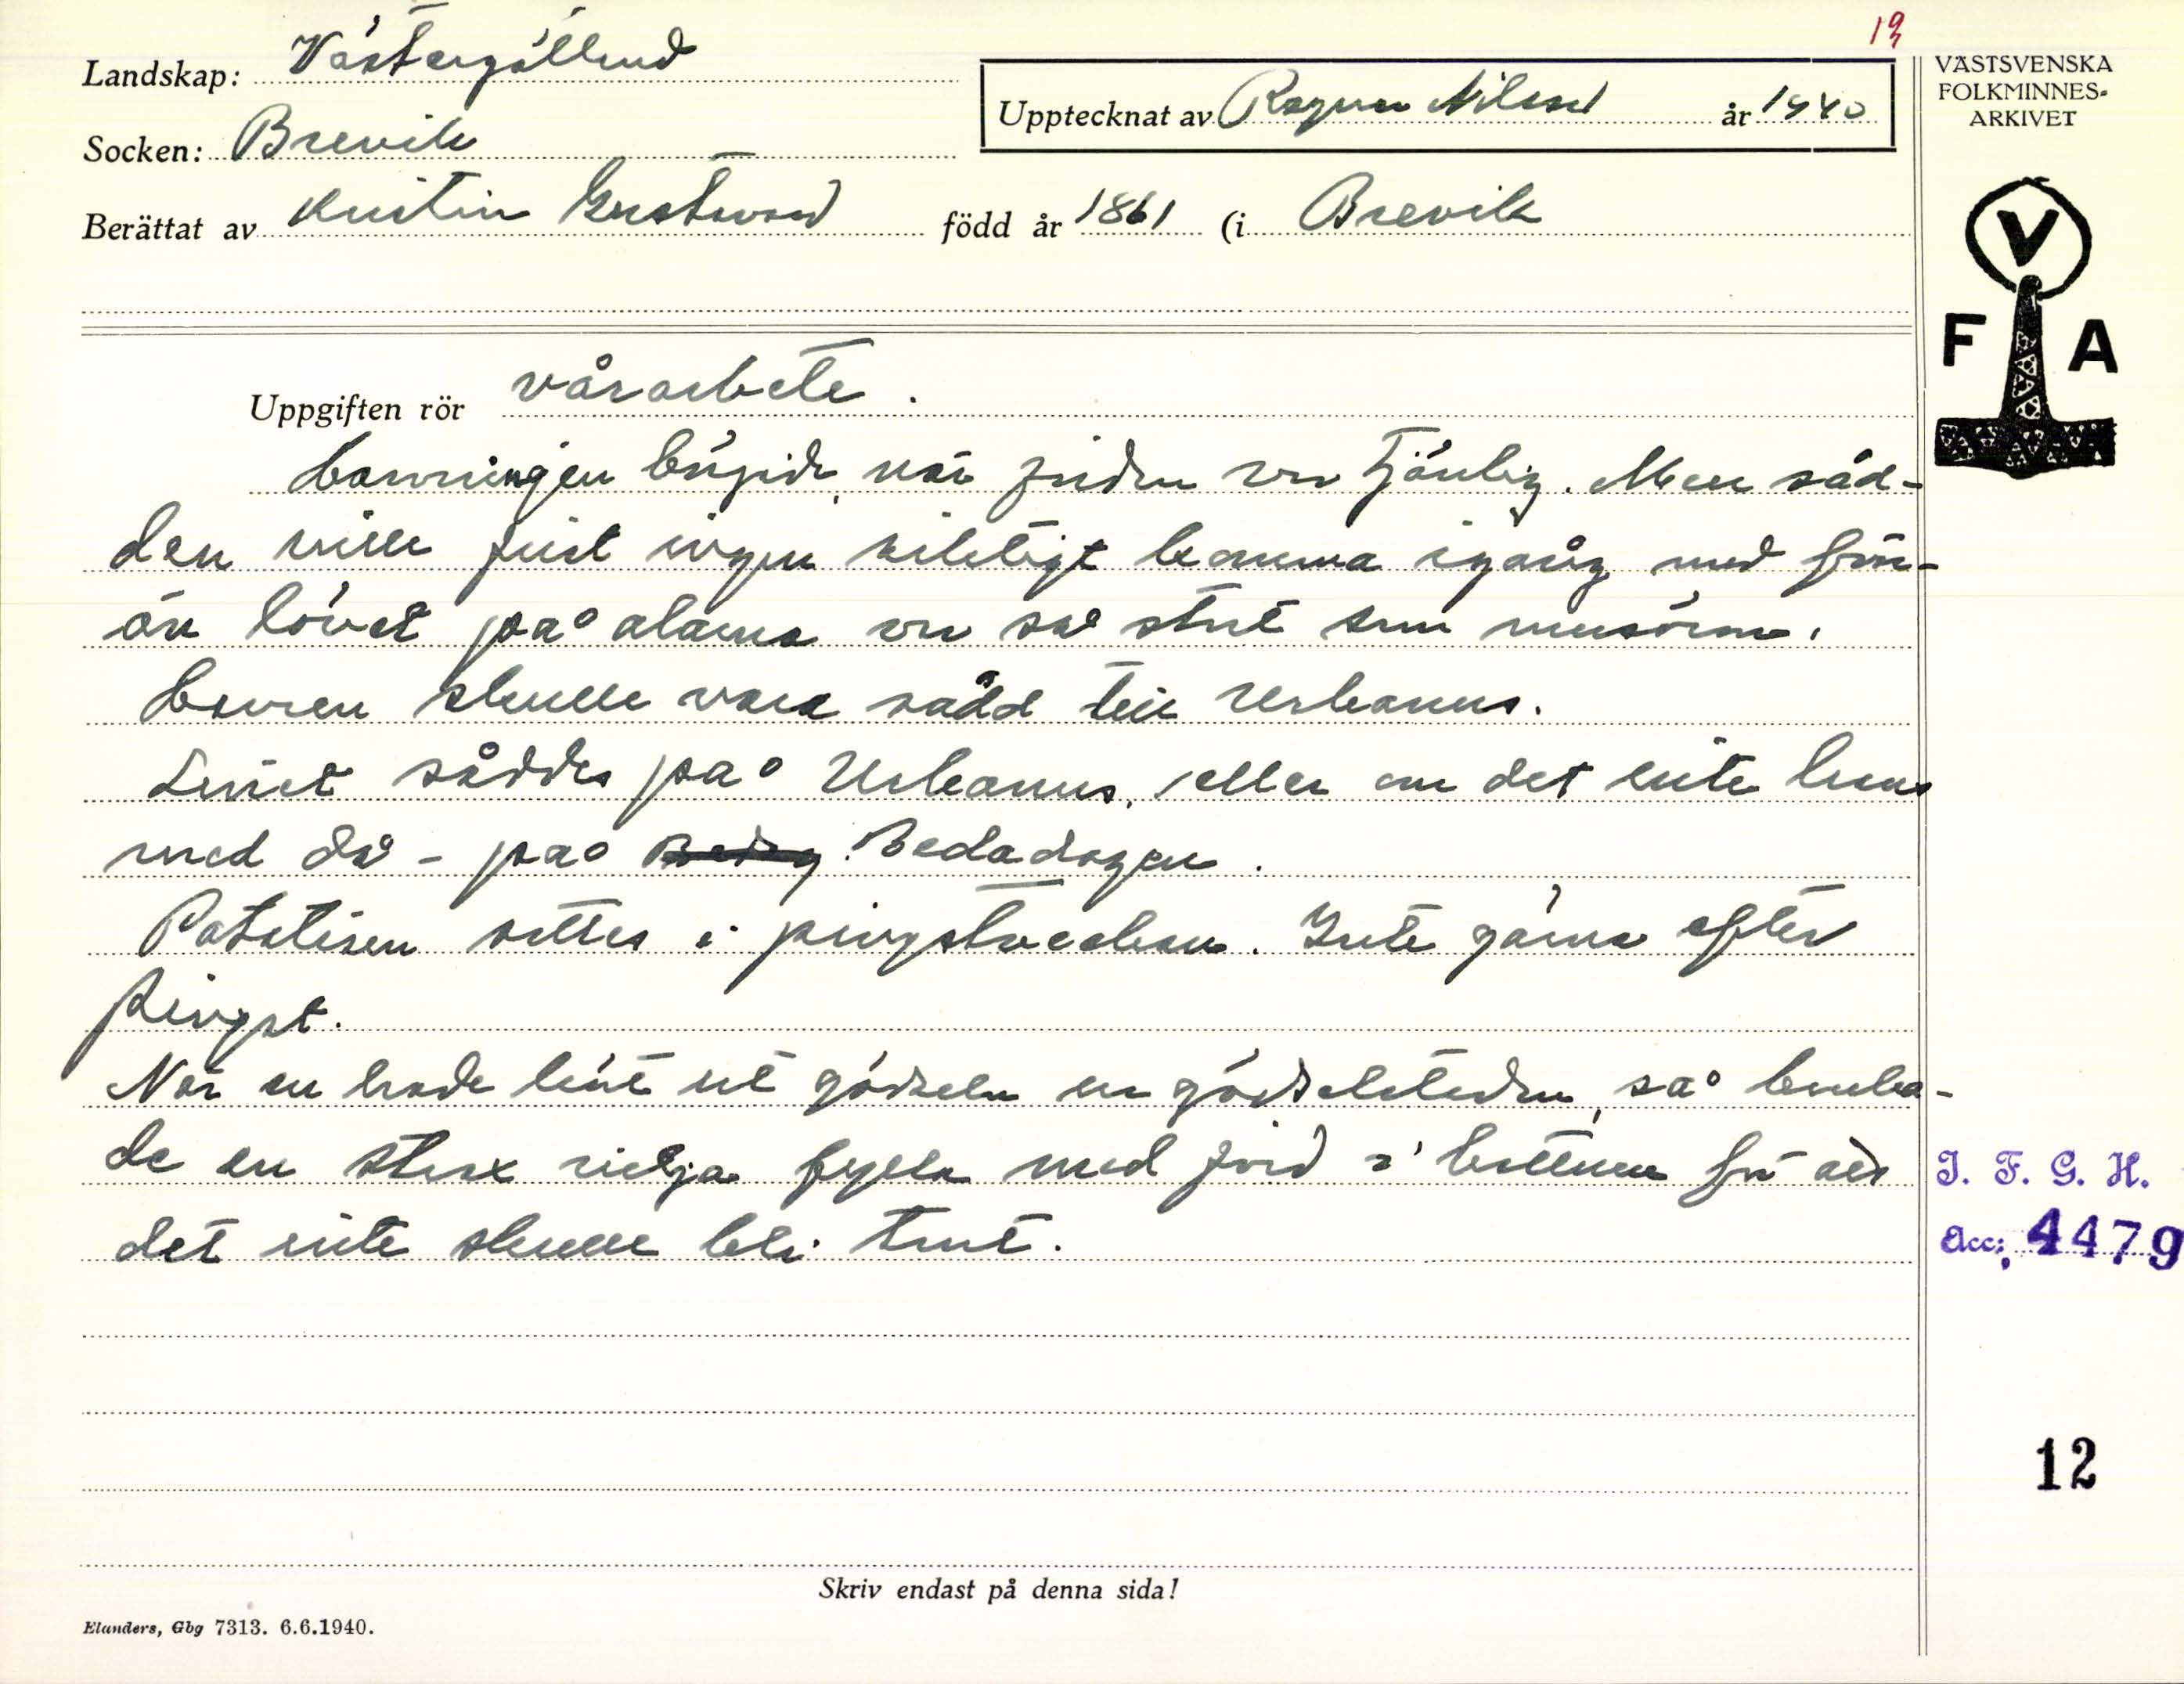 19
Landskap: Västergötland
Socken: Brevik
Berättat av Kristin Gustavsson född år 1861 (i Brevik
Upptecknat av Ragnar Nilsson år 1940
VÄSTSVENSKA
FOLKMINNES-
ARKIVET
V
F A
Uppgiften rör vårarbete.
Harvningen började, när jorden var tjänlig. Men såd-
den ville just ingen riktigt komma igång med förr-
än lövet på alarna var så stort som musöron.
Kornen skulle vara sådd till Urbanus.
Linet såddes på Urbanus, eller om det inte hanns
med då - på Bedadagen.
Potatisen sattes i pingstveckan. Inte gärna efter
pingst.
När en hade kört ut gödseln ur gödselstaden, så bruka-
de en strax vilja fylla med jord i bottnen för att
det inte skulle bli tomt.
I. F. G. H.
Acc: 4479
12
Skriv endast på denna sida!
Elanders, Gbg 7313. 6.6.1940.